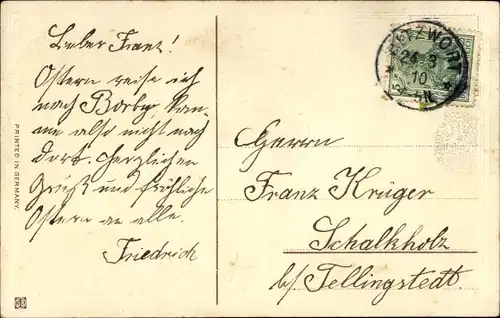 Lieber Franz!
Ostern reise ich
nach Borby, kan-
me also nicht nach
dort. Herzlichen
Gruß und fröhliche
Ostern an alle.
Friedrich
PRINTED IN GERMANY.
24 3
10
Herrn
Franz Krüger
Schalkholz
b/. Tellingstedt.